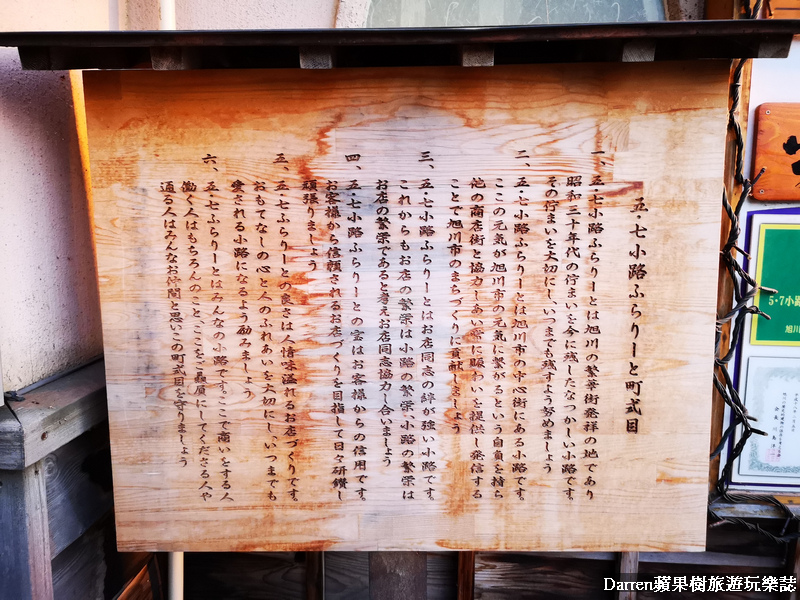 五・七小路ふらりーと町式目
一、五・七小路ふらりーとは旭川の繁華街発祥の地であり
昭和三十年代の佇まいを今に残したなつかしい小路です。
その佇まいを大切にし、いつまでも残すよう努めましょう
二、五・七小路ふらりーとは旭川市の中心街にある小路です。
ここの元気が旭川市の元気に繋がるという自負を持ち
他の商店街と協力しあい常に賑わいを提供し発信する
ことで旭川市のまちづくりに貢献しましょう
三、五・七小路ふらりーとはお店同志の絆が強い小路です。
これからもお店の繁栄は小路の繁栄、小路の繁栄は
お店の繁栄であると考えお店同志協力し合いましょう
四、五・七小路ふらりーとの宝はお客様からの信用です。
お客様から信頼されるお店づくりを目指して日々研鑽し
頑張りましょう
五、五・七ふらりーとの良さは人情味溢れるお店づくりです。
おもてなしの心と人のふれあいを大切にし、いつまでも
愛される小路になるよう励みましょう
六、五・七ふらりーとはみんなの小路です。ここで商いをする人
働く人はもちろんのこと、ここをご贔屓にしてくださる人や
通る人はみんなお仲間と思いこの町式目を守りましょう
5・7小路
旭川
Darren蘋果樹旅遊玩樂誌